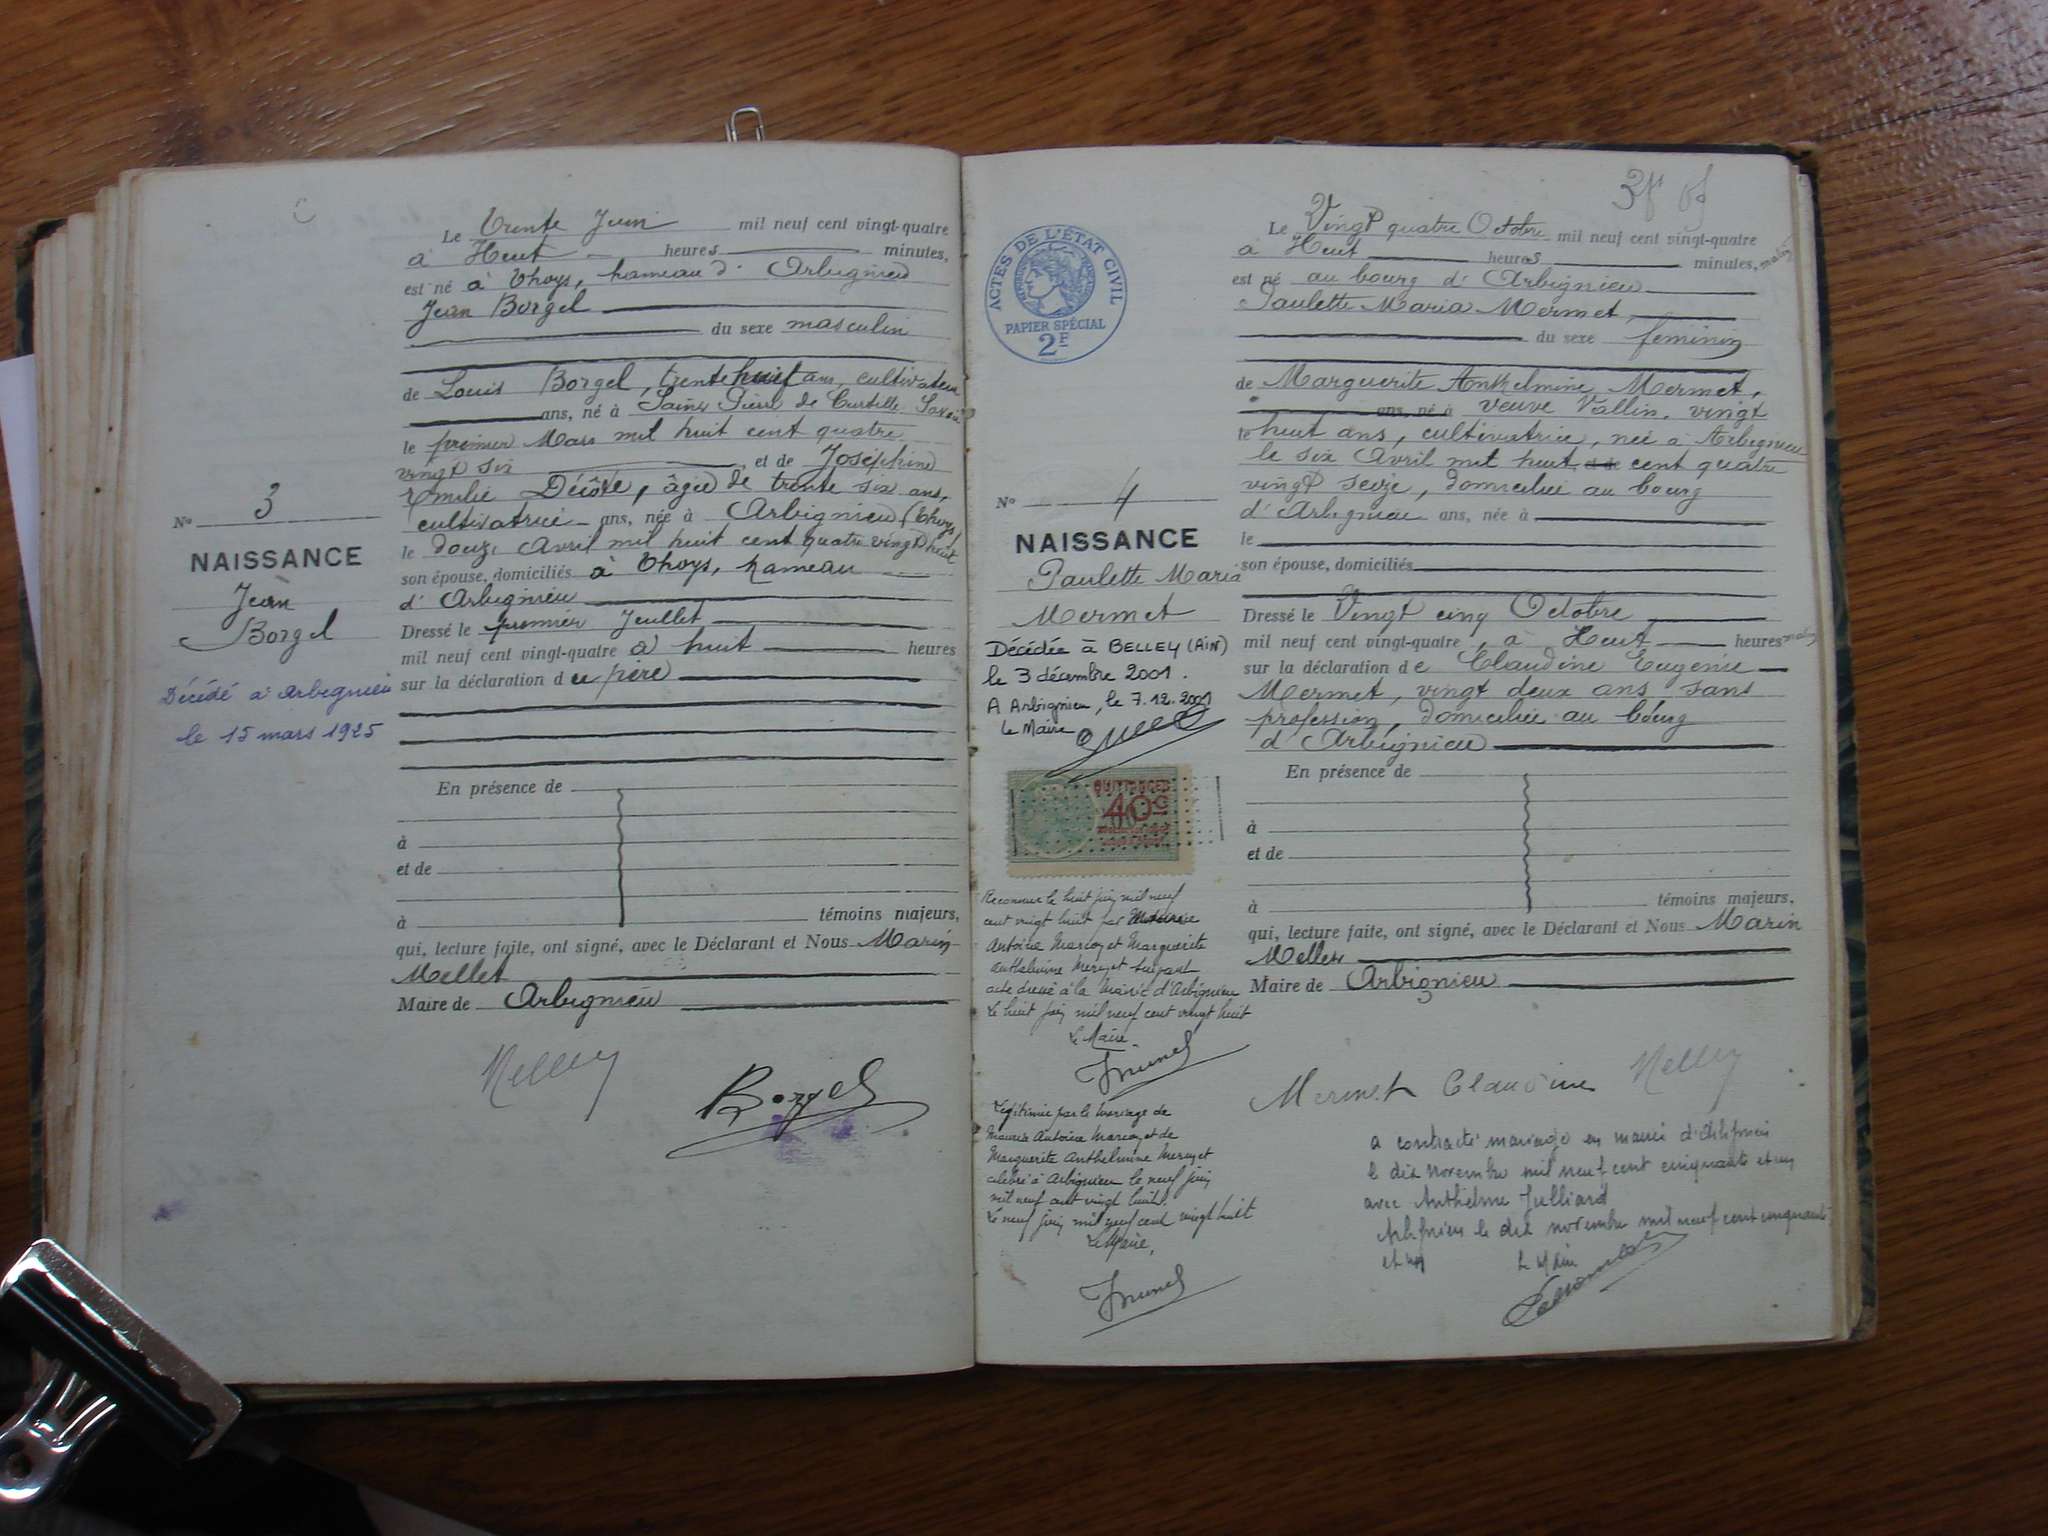 Le Trente Juin mil neuf cent vingt-quatre
à Huit heures minutes,
est né à Thoys, hameau d' Arbignieu
Jean Borgel
du sexe masculin
de Louis Borgel, trente huit ans, cultivateur
ans, né à Saint Pierre de Curtille Savoie
le premier Mars mil huit cent quatre
vingt six et de Joséphine
Emilie Décôte, âgée de trente six ans,
cultivatrice ans, née à Arbignieu (Thoys)
le douze Avril mil huit cent quatre vingt huit
son épouse, domiciliés à Thoys, hameau
d' Arbignieu
Dressé le premier Juillet
mil neuf cent vingt-quatre à huit heures
sur la déclaration du père
En présence de
à
et de
à témoins majeurs,
qui, lecture faite, ont signé, avec le Déclarant et Nous Marin
Mellet
Maire de Arbignieu
Borgel
No 3
NAISSANCE
Jean
Borgel
Décédé à Arbignieu
le 15 mars 1925
ACTES DE L'ÉTAT CIVIL
PAPIER SPÉCIAL
2F
No 4
NAISSANCE
Paulette Maria
Mermet
Décédée à BELLEY (AIN)
le 3 décembre 2001.
A Arbignieu, le 7.12.2001
Le Maire
QUITTANCES
40c
Reconnue le huit juin mil neuf
cent vingt huit par Maurice
Antoine Marcoz et Marguerite
Anthelmine Mermet suivant
acte dressé à la Mairie d'Arbignieu
Le huit juin mil neuf cent vingt huit
Le Maire
Légitimée par le mariage de
Maurice Antoine Marcoz et de
Marguerite Anthelmine Mermet
célébré à Arbignieu le neuf juin
mil neuf cent vingt huit.
Le neuf juin mil neuf cent vingt huit
Le Maire,
Le Vingt quatre Octobre mil neuf cent vingt-quatre
à Huit heures minutes, matin
est né au bourg d' Arbignieu
Paulette Maria Mermet
du sexe féminin
de Marguerite Anthelmine Mermet,
ans, né à veuve Vallin, vingt
le huit ans, cultivatrice, née à Arbignieu
le six Avril mil huit et de cent quatre
vingt seize, domiciliée au bourg
d' Arbignieu ans, née à
le
son épouse, domiciliés
Dressé le Vingt cinq Octobre
mil neuf cent vingt-quatre, à Huit heures matin
sur la déclaration de Claudine Eugénie
Mermet, vingt deux ans sans
profession, domiciliée au bourg
d' Arbignieu
En présence de
à
et de
à témoins majeurs,
qui, lecture faite, ont signé, avec le Déclarant et Nous Marin
Mellet
Maire de Arbignieu
Mermet Claudine
a contracté mariage en mairie d'Arbignieu
le dix novembre mil neuf cent cinquante et un
avec Anthelme Julliard
Arbignieu le dix novembre mil neuf cent cinquante
et un Le Maire